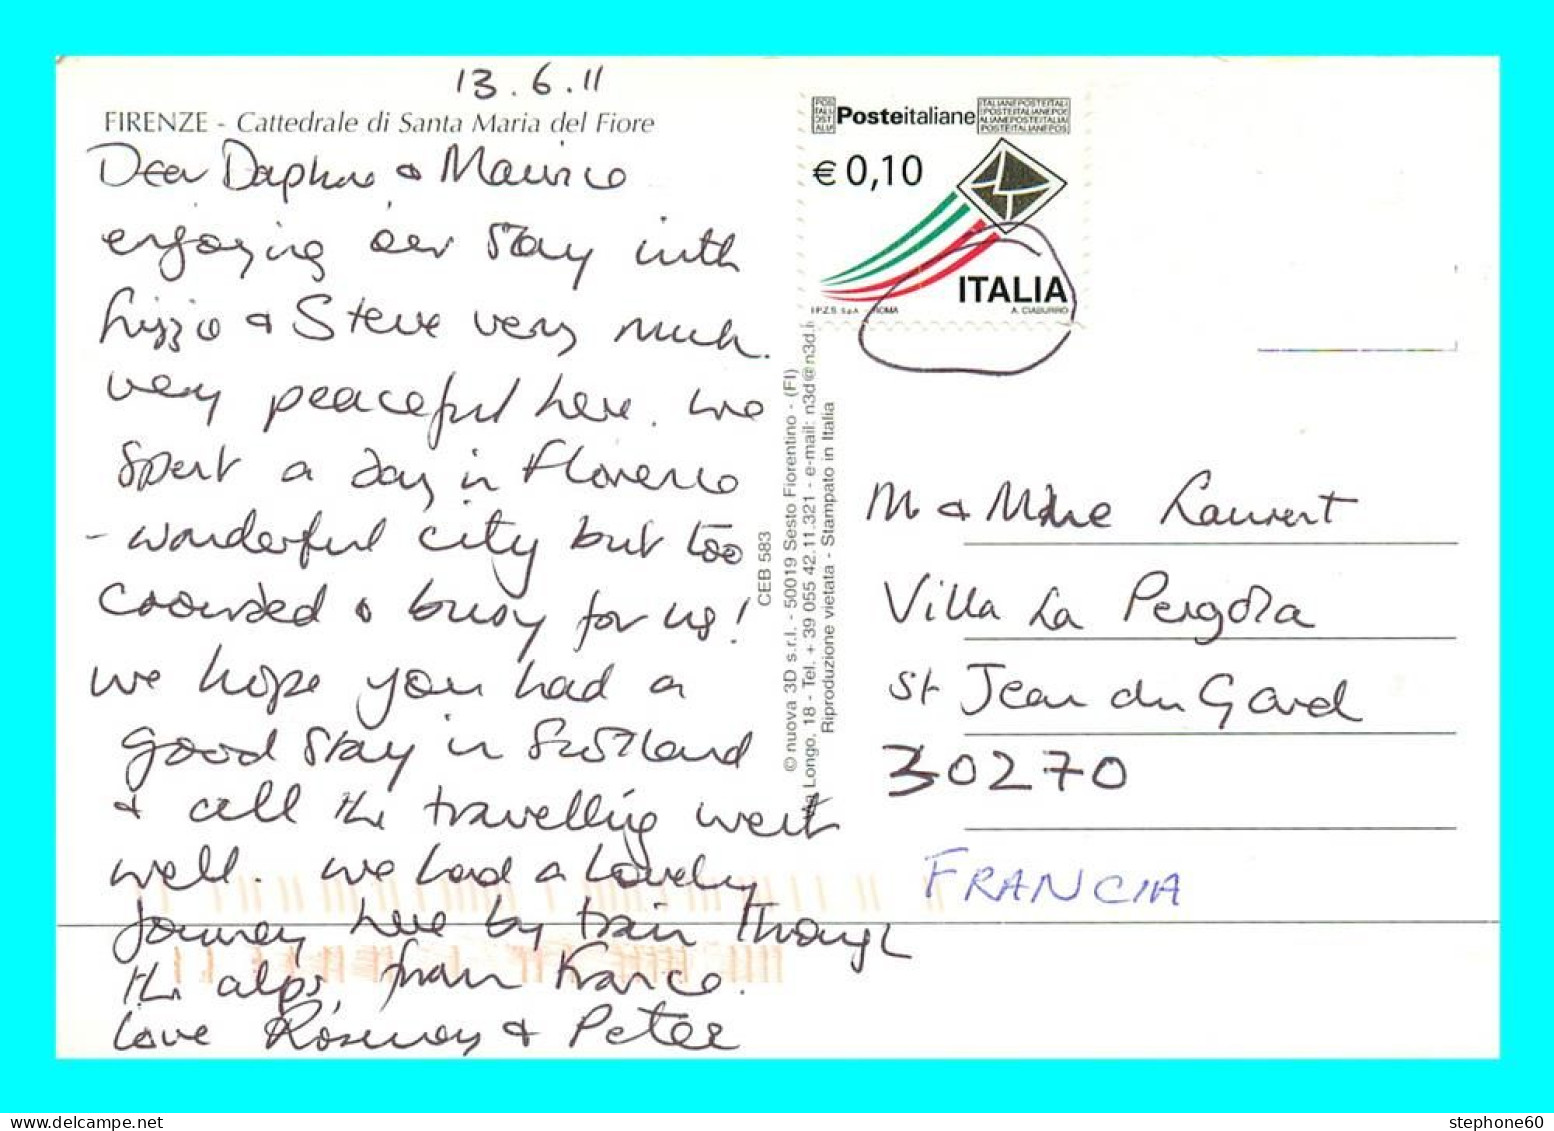 13.6.11
FIRENZE - Cattedrale di Santa Maria del Fiore
Dear Daphne & Maurice
enjoying our stay with
Lizzie & Steve very much.
very peaceful here. we
spent a day in Florence
- wonderful city but too
crowded & busy for us!
we hope you had a
good stay in Scotland
& all the travelling went
well. we had a lovely
journey here by train through
the alps, from France.
Love Rosemary & Peter
CEB 583
© nuova 3D s.r.l. - 50019 Sesto Fiorentino - (FI)
Via Longo, 18 - Tel. + 39 055 42.11.321 - e-mail: n3d@n3d.i
Riproduzione vietata - Stampato in Italia
Posteitaliane
€ 0,10
ITALIA
I.P.Z.S. S.p.A. - ROMA
A. CIABURRO
M & Mme Laurent
Villa La Pergola
St Jean du Gard
30270
FRANCIA
stephone60